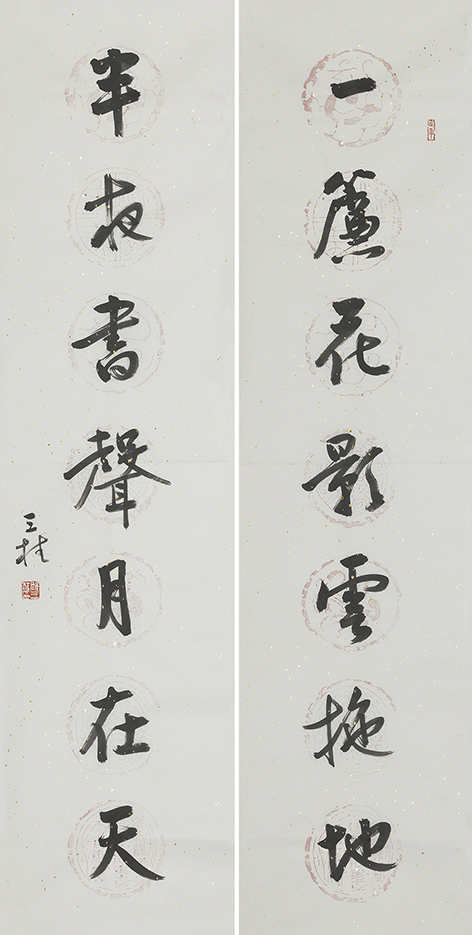 一簾花影雲拖地
半夜書聲月在天
三桂